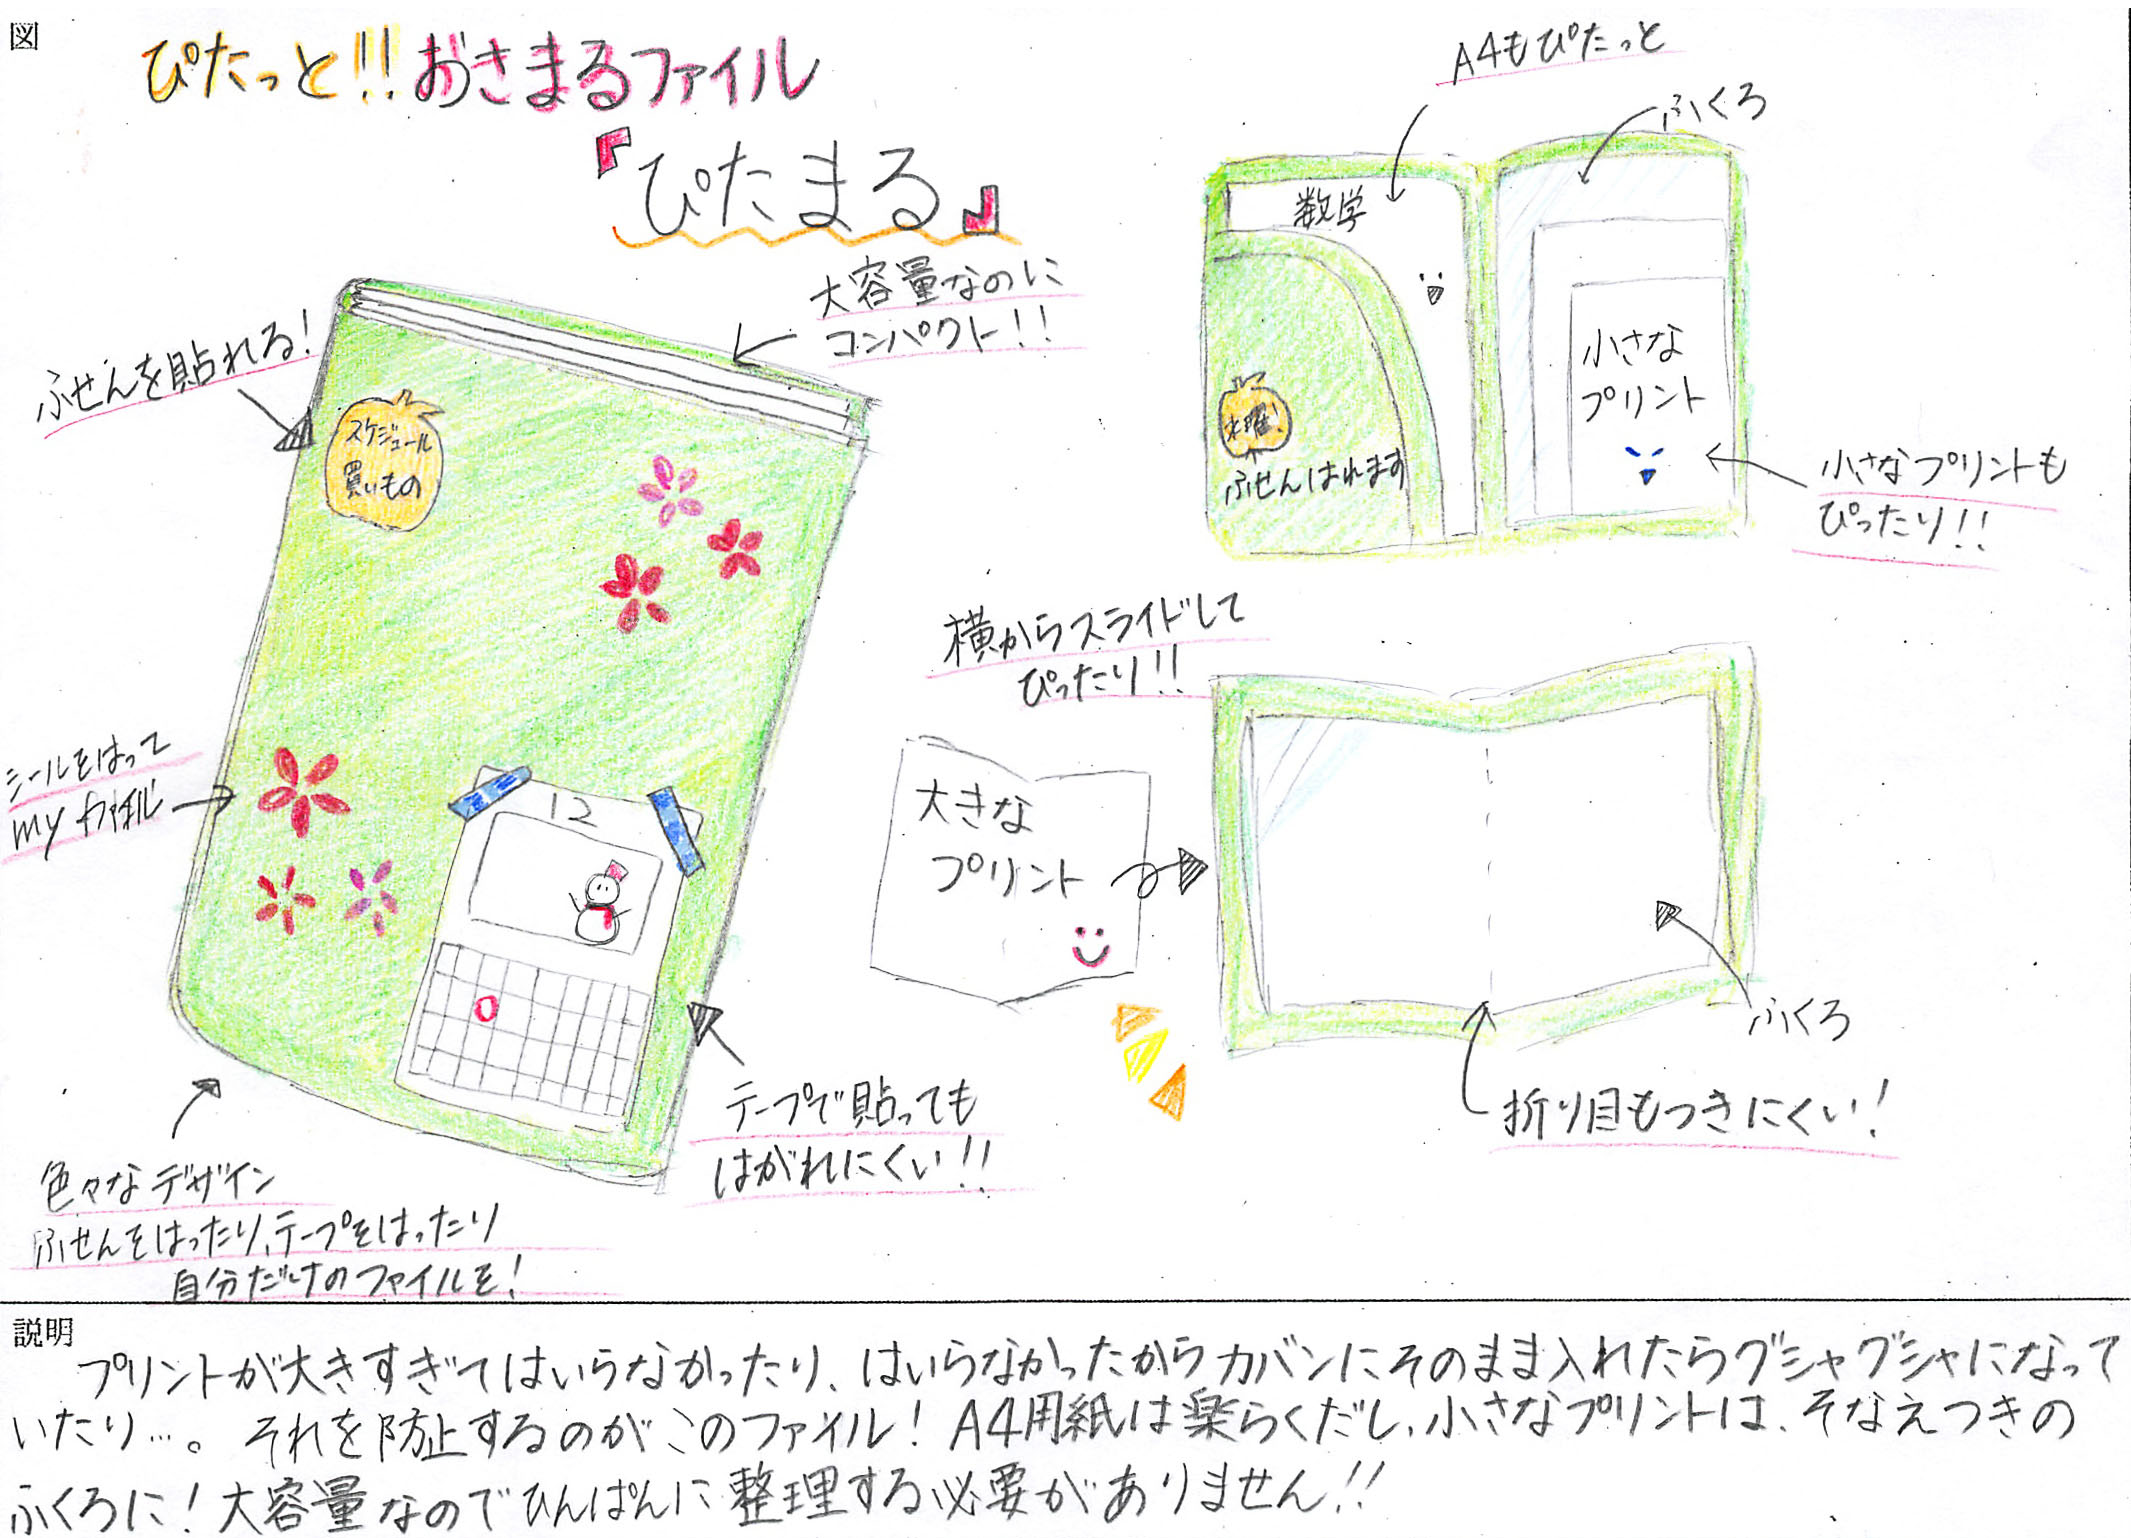 図
ぴたっと!!おさまるファイル
『ぴたまる』
A4もぴたっと
ふくろ
数学
水曜!
ふせんはれます
小さな
プリント
小さなプリントも
ぴったり!!
大容量なのに
コンパクト!!
ふせんを貼れる!
スケジュール
買いもの
シールをはって
my ファイル
12
テープで貼っても
はがれにくい!!
色々なデザイン
ふせんをはったり、テープをはったり
自分だけのファイルを!
横からスライドして
ぴったり!!
大きな
プリント
ふくろ
折り目もつきにくい!
説明
プリントが大きすぎてはいらなかったり、はいらなかったからカバンにそのまま入れたらグシャグシャになって
いたり…。それを防止するのがこのファイル!A4用紙は楽らくだし、小さなプリントは、そなえつきの
ふくろに!大容量なのでひんぱんに整理する必要がありません!!